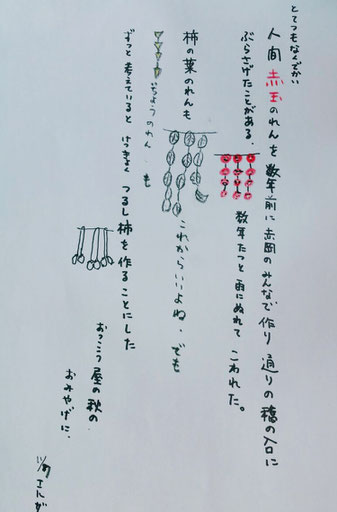 とてつもなくでかい
人間 赤玉のれんを 数年前に 赤岡の みんなで 作り 通りの 橋の 入口に
ぶらさげたことがある。
数年たつと 雨にぬれて こわれた。
柿の葉のれんも
これから いいよね・でも
いちょうのれん も
ずっと 考えていると けっきょく つるし柿を 作ることにした
おっこう屋の 秋の
おみやげに、